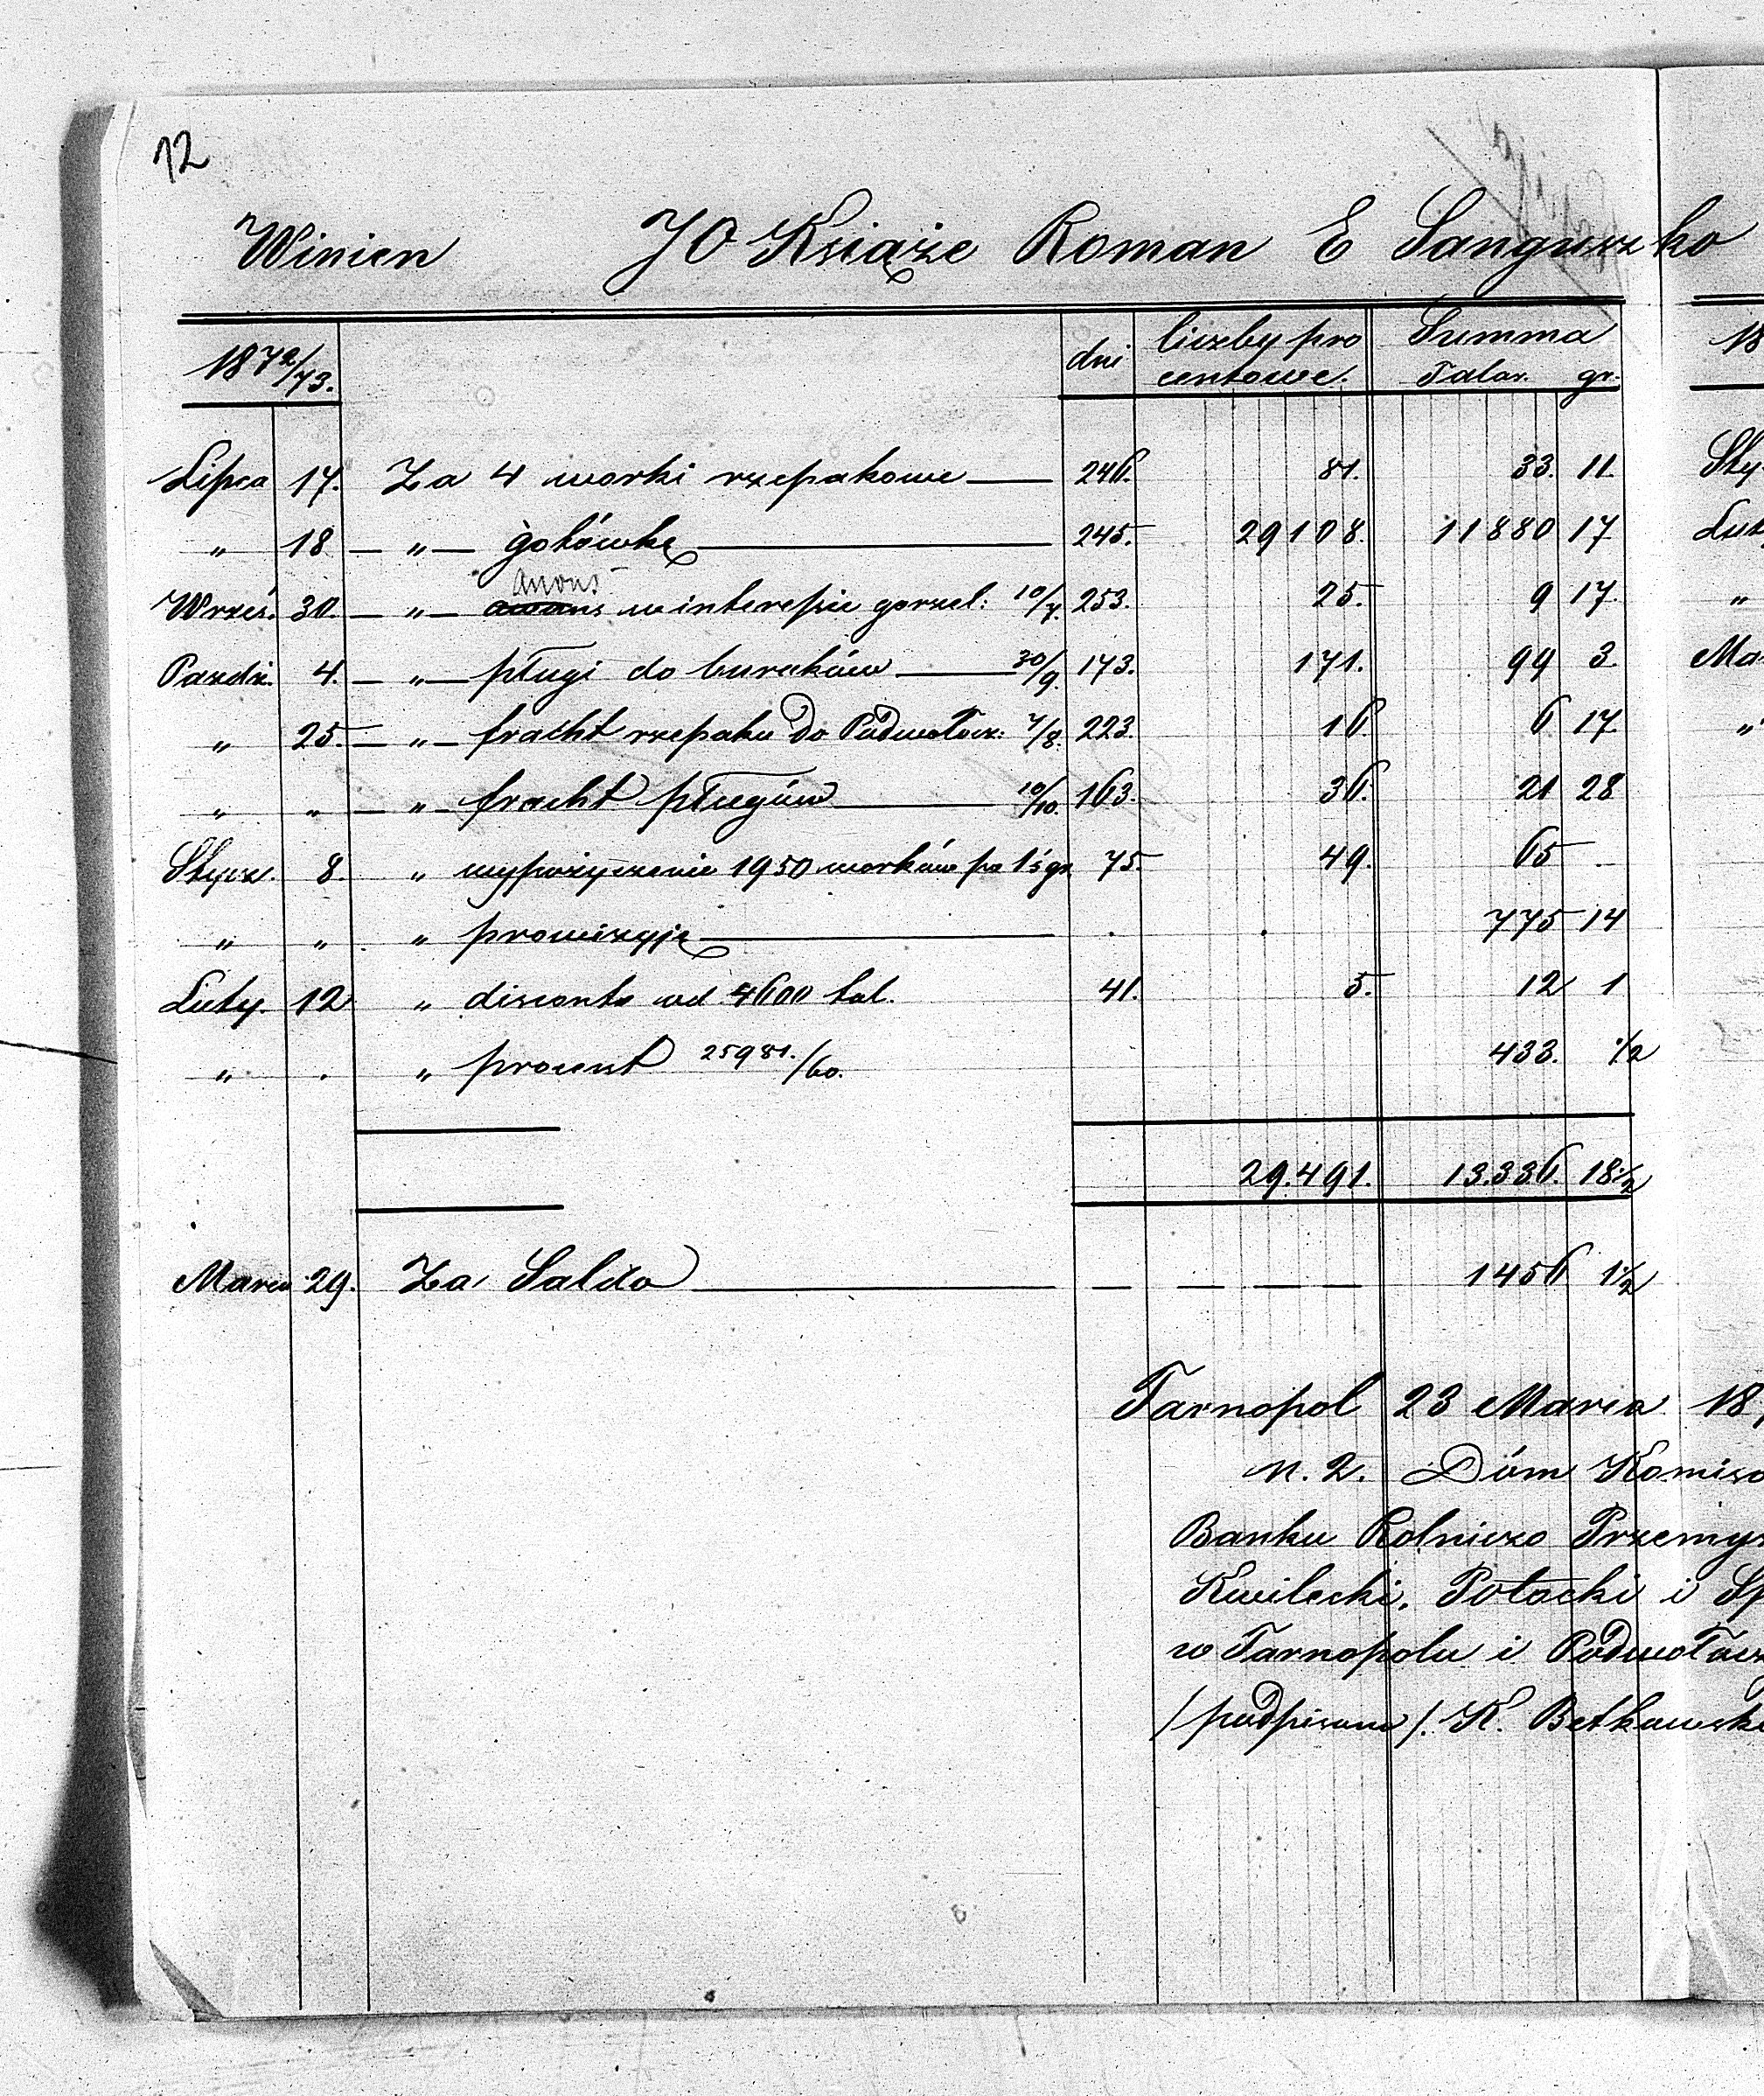 12
Winien JO Książe Roman E Sanguszko
1872/73. dni liczby pro centowe. Summa Talar. gr.
Lipca 17. Za 4 worki rzepakowe 246. 81. 33. 11.
„ 18 — „ — gotówkę 245. 29108. 11880 17
anons
Wrześ. 30. — „ — anons w interesie gorzel: 10/7. 253. 25. 9 17.
Pazdz. 4. — „ — pługi do buraków 30/9. 173. 171. 99 3.
„ 25. — „ — fracht rzepaku do Podwołocz: 7/8. 223. 16. 6. 17.
„ „ — „ — fracht pługów 10/10. 163. 36. 21 28
Stycz. 8. „ wypożyczenie 1950 worków po 1 śgr 75. 49. 65 .
„ „ . „ prowizyję . . 775 14
Luty. 12 „ disconto od 4600 tal. 41. 5. 12 1
„ . „ procent 25981./60. 433. ½
29.491. 13.336. 18½
Marca 29. Za Saldo — — — — 1456 1½
Tarnopol 23 Marca 18
n. 2. Dóm Komiso
Banku Rolniczo Przemys
Kwilecki, Potocki i Sp
w Tarnopolu i Podwołocz
/podpisano/. K. Betkowski
18
Sty
Lut
„
Ma
„